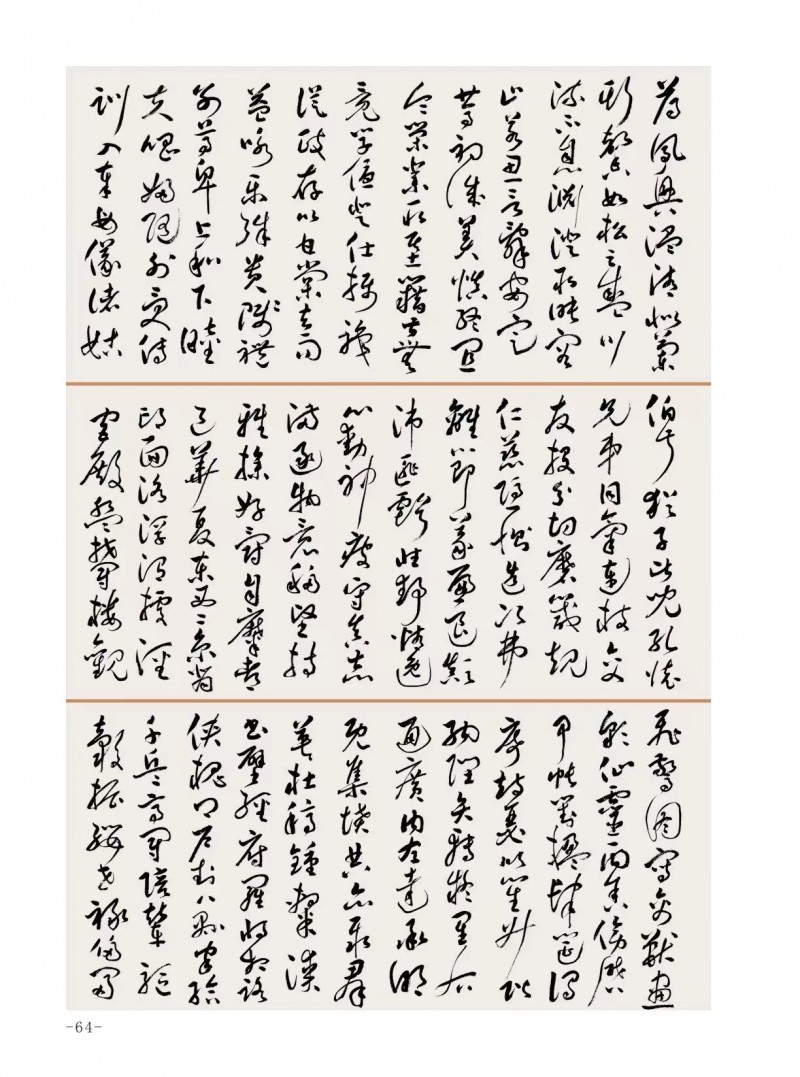 薄夙興溫凊似蘭
斯馨如松之盛川
流不息淵澄取映容
止若思言辭安定
篤初誠美慎終宜
令榮業所基籍甚無
竟學優登仕攝職
從政存以甘棠去而
益詠樂殊貴賤禮
別尊卑上和下睦
夫唱婦隨外受傅
訓入奉母儀諸姑
伯叔猶子比兒孔懷
兄弟同氣連枝交
友投分切磨箴規
仁慈隱惻造次弗
離節義廉退顛
沛匪虧性靜情逸
心動神疲守真志
滿逐物意移堅持
雅操好爵自縻都
邑華夏東西二京背
邙面洛浮渭據涇
宮殿盤鬱樓觀
飛驚圖寫禽獸畫
彩仙靈丙舍傍啟
甲帳對楹肆筵設
席鼓瑟吹笙升階
納陛弁轉疑星右
通廣內左達承明
既集墳典亦聚群
英杜稿鍾隸漆
書壁經府羅將相路
俠槐卿戶封八縣家給
千兵高冠陪輦驅
轂振纓世祿侈富
-64-